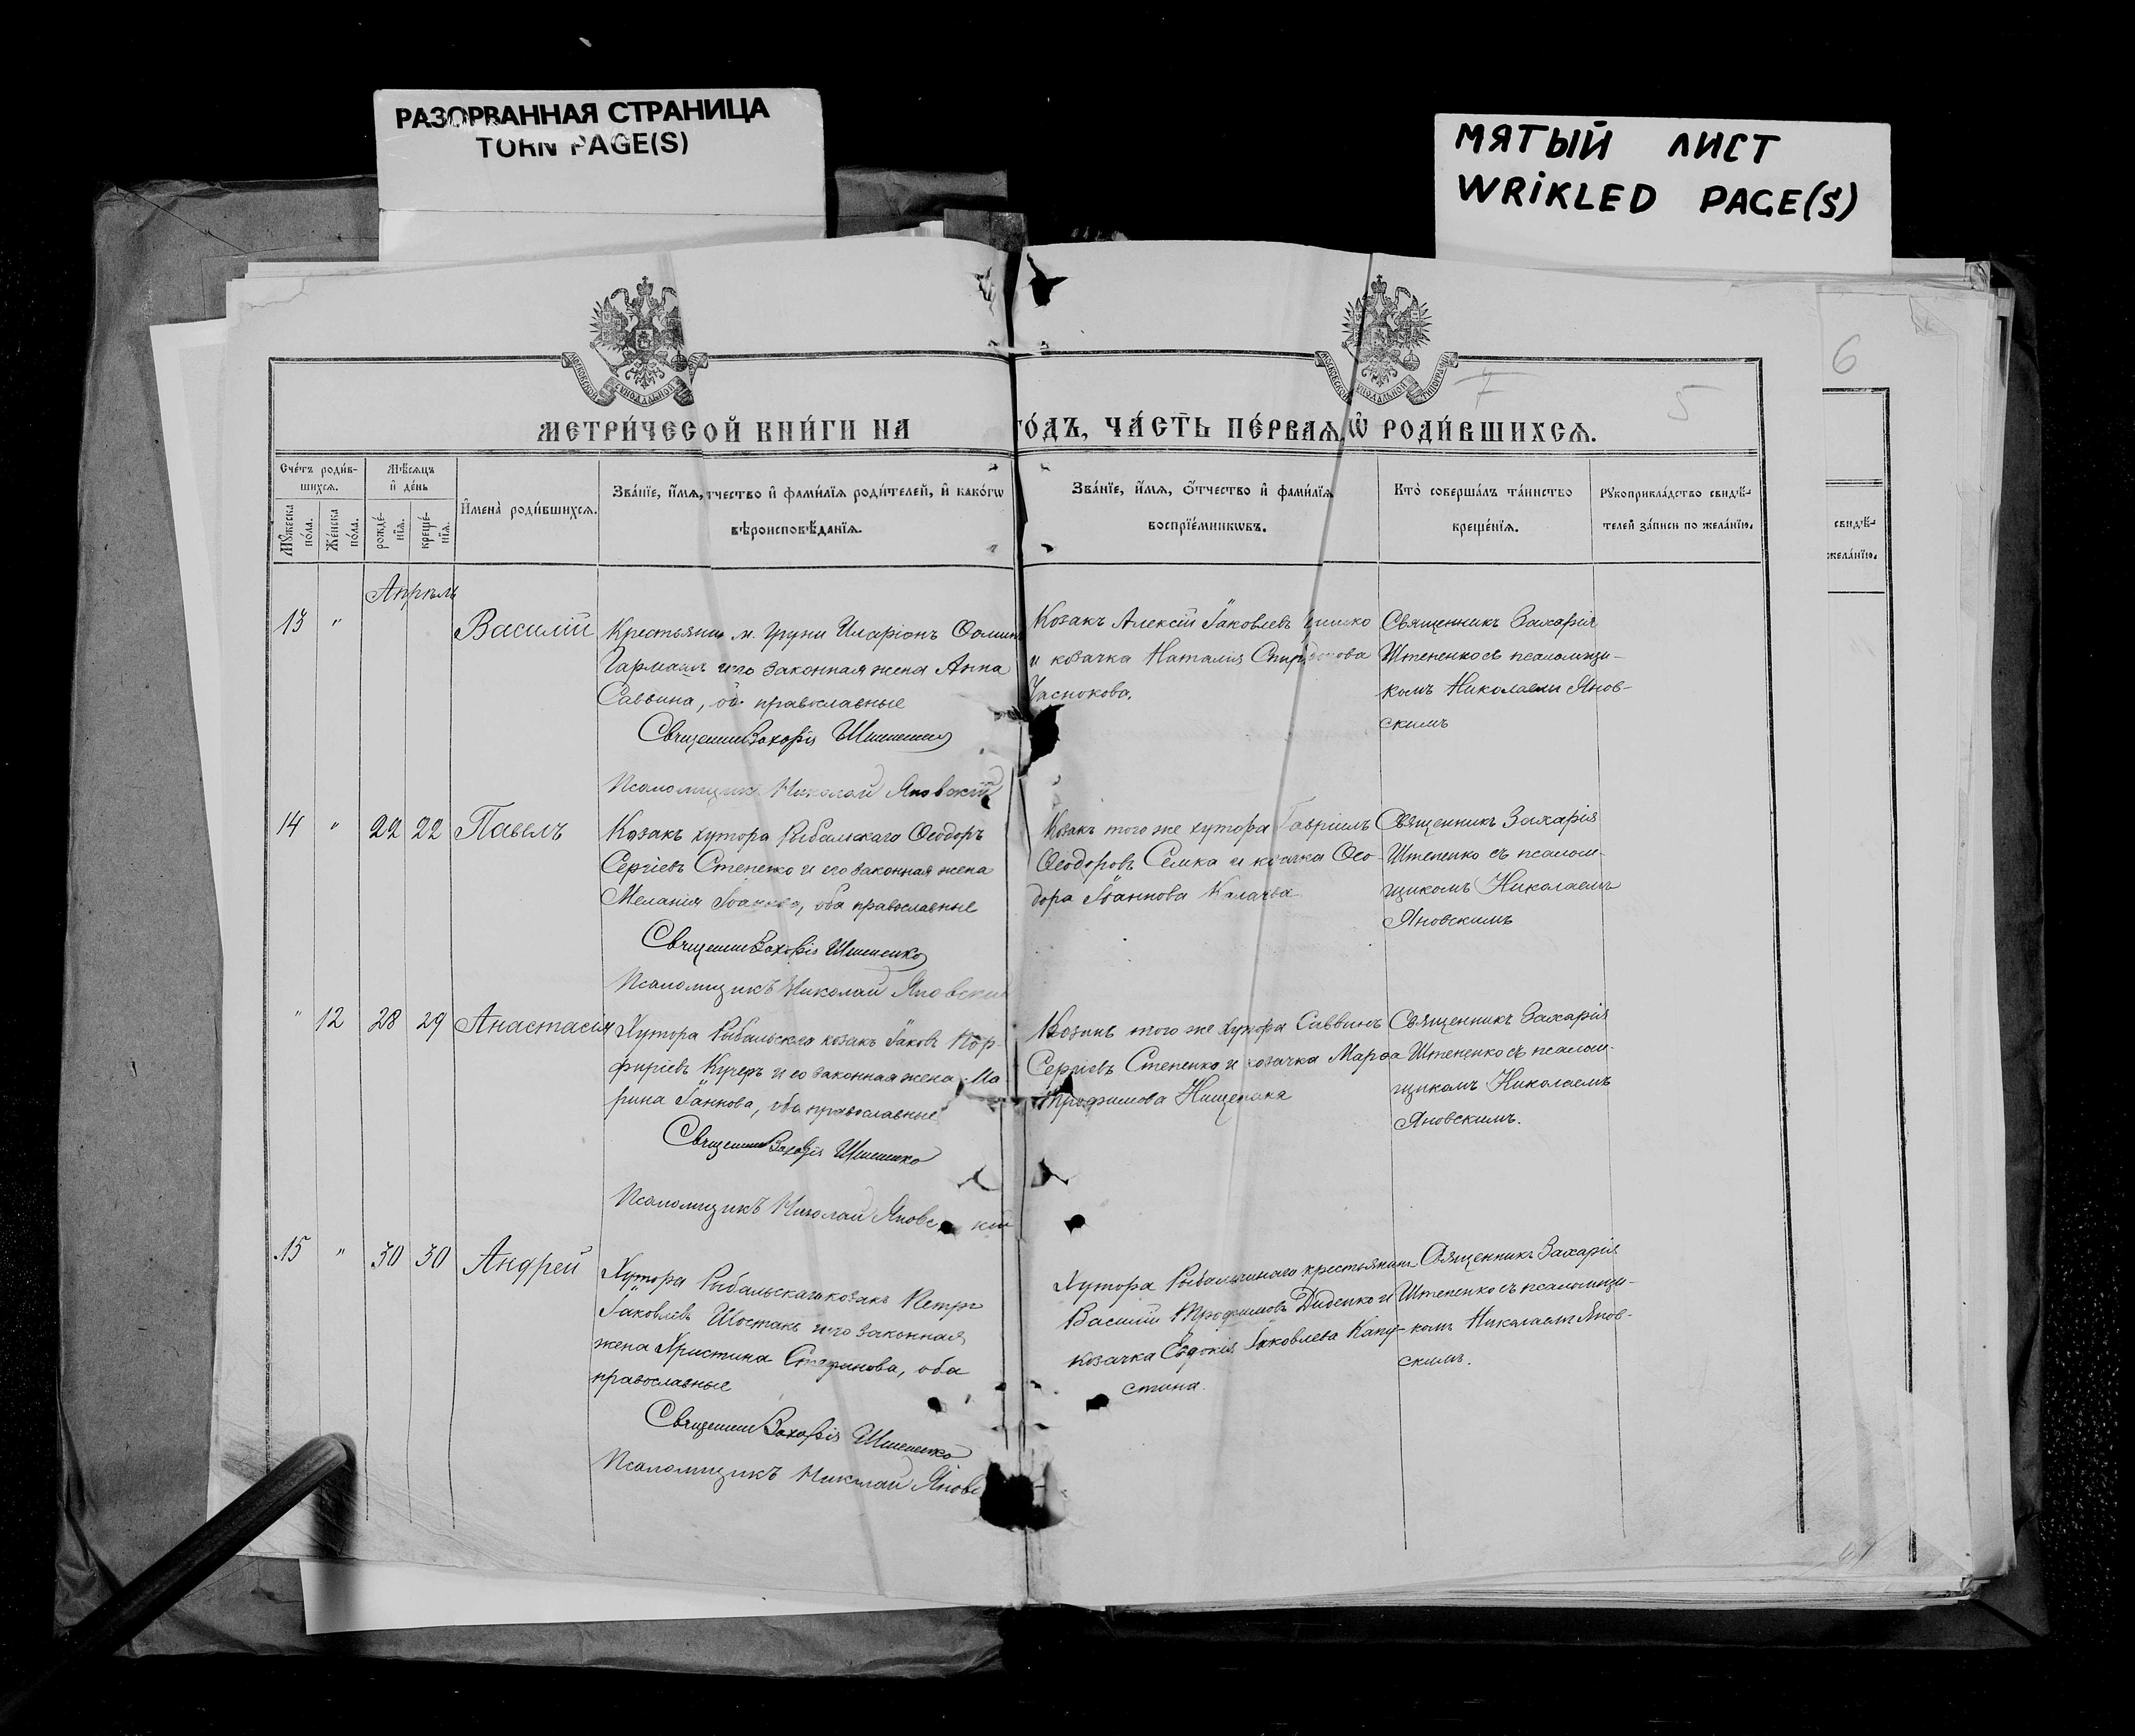 РАЗОРВАННАЯ СТРАНИЦА
TORN PAGE(S)
МЯТЫЙ ЛИСТ
WRIKLED PAGE(S)
6
7
5
МЕТРИ́ЧЕСОЙ КНИ́ГИ НА ГО́ДЪ, ЧА́СТЬ ПЕ́РВАЯ, Ѡ РОДИ́ВШИХСЯ.
Счéтъ роди́в-
шихся.
Мꙋжеска по́ла.
Же́нска по́ла.
Мѣ́сяцъ
и҆ де́нь
рожде́-
нїя.
креще́-
нїя.
И҆мена̀ роди́вшихся.
Зва́нїе, и҆́мя, ѻ҆тчество и҆ фами́лїя роди́телей, и҆ како́гѡ
вѣроисповѣ́данїя.
Зва́нїе, и҆́мя, ѻ҆́тчество и҆ фами́лїя
воспрїе́мникѡвъ.
Кто̀ соверша́лъ та́инство
креще́нїя.
Рꙋкоприкла́дство свидѣ́-
телей за́писи по жела́нїю.
свидѣ́-
жела́нїю.
Апрѣль
13 " Василій
Крестьянин м. Груни Иларіонъ Ѳомин
и его законная жена Анна
Саввина, об. православные
Священник Захарія Штепенко
Псаломщик Николай Яновскій
Козакъ Алексій Іаковлевъ
и козачка Наталія Спиридонова
Часнокова.
Священникъ Захарія
Штепенко съ псаломщи-
комъ Николаем Янов-
скимъ
14 " 22 22 Павелъ
Козакъ хутора Рыбальскаго Ѳеодоръ
Сергіевъ Степенко и его законная жена
Меланія Іоаннова, оба православные
Священник Захарія Штепенко
Псаломщикъ Николай Яновскій
Козакъ того же хутора Гавріилъ
Ѳеодоровъ Семка и козачка Ѳео-
дора Іоаннова
Священникъ Захарія
Штепенко съ псалом-
щикомъ Николаемъ
Яновскимъ
" 12 28 29 Анастасія
Хутора Рыбальскаго козакъ Іаковъ Пор-
фиріевъ Кучеръ и его законная жена Ма-
рина, оба православные
Священник Захарія Штепенко
Псаломщикъ Николай Яновскій
Козакъ того же хутора Саввинъ
Сергіевъ Степенко и козачка Марѳа
Трофимова
Священникъ Захарія
Штепенко съ псалом-
щикомъ Николаемъ
Яновскимъ.
15 " 30 30 Андрей
Хутора Рыбальскаго козакъ Петръ
Іаковлевъ Шостакъ и его законная
жена Христина Стефанова, оба
православные
Священник Захарія Штепенко
Псаломщикъ Николай Яновс
Хутора Рыбальскаго крестьянинъ
Василій Трофимовъ Диденко и
козачка Евдокія Іаковлева Капу-
стина.
Священникъ Захарія
Штепенко съ псаломщи-
комъ Николаемъ Янов-
скимъ.